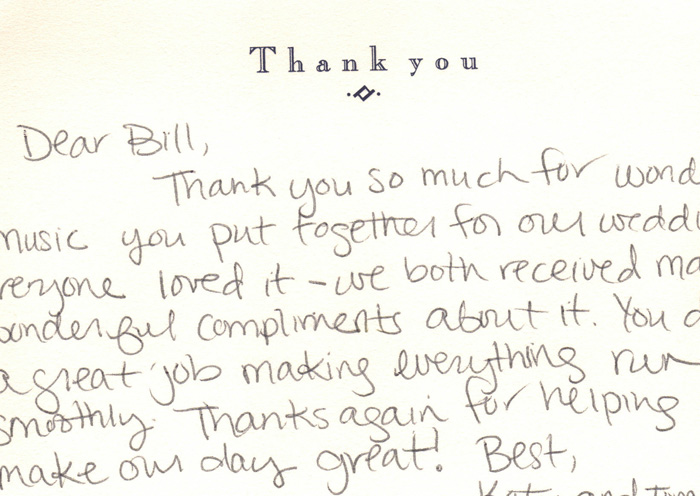 Thank you
Dear Bill,
Thank you so much for wond
music you put together for our weddi
reryone loved it - we both received ma
onderful compliments about it. You d
a great job making everything run
smoothly. Thanks again for helping
make our day great! Best,